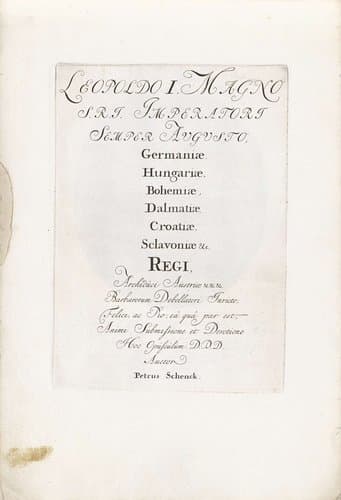 LEOPOLDO I. MAGNO
S.R.I. IMPERATORI
SEMPER AVGVSTO,
Germaniæ
Hungariæ.
Bohemiæ.
Dalmatiæ.
Croatiæ.
Sclavoniæ &c.
REGI,
Archiduci Austriæ &c&c&c.
Barbarorum Debellatori Invicto,
Felici ac Pio, eâ quâ par est
Animi Submissione et Devotione
Hoc Opusculum D.D.D.
Auctor
Petrus Schenck.